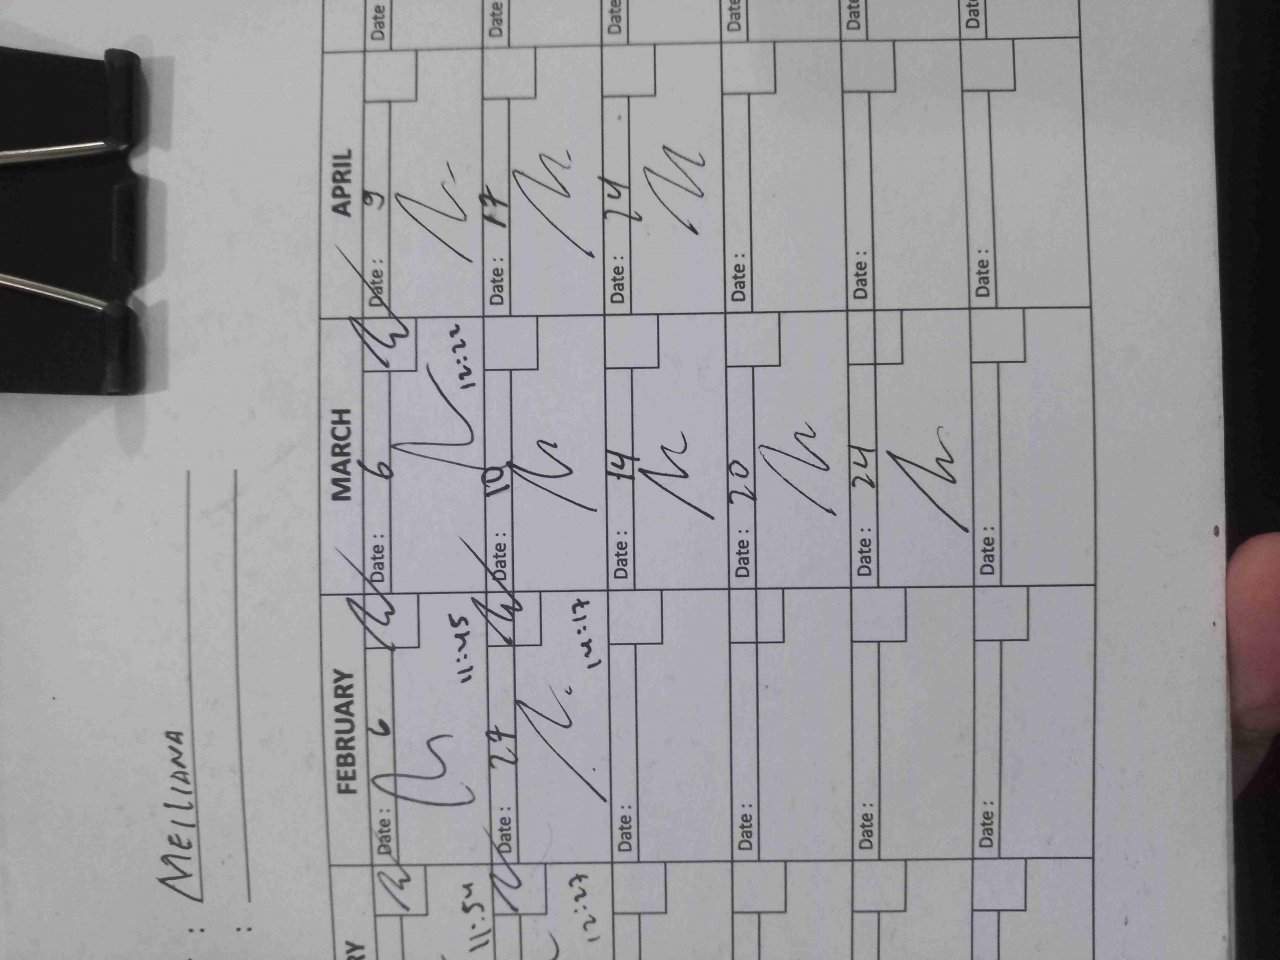 : MEILIANA
:
RY FEBRUARY MARCH APRIL
Date : 6 Date : 6 Date : 9 Date
11:54 11:45 12:22
Date : 27 Date : 10 Date : 17 Date
12:27 14:17
Date : Date : 14 Date : 24 Date
Date : Date : 20 Date : Date
Date : Date : 24 Date : Date
Date : Date : Date : Date